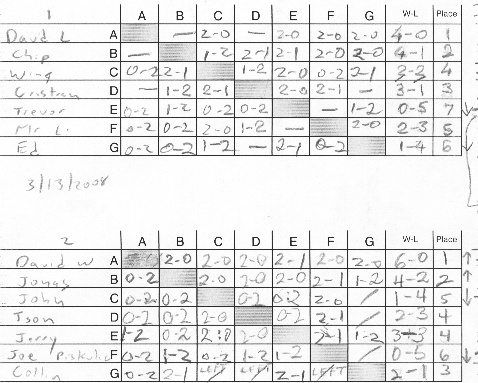 1 A B C D E F G W-L Place
David L A — 2-0 — 2-0 2-0 2-0 4-0 1
Chip B — 1-2 2-1 2-1 2-0 2-0 4-1 2
Wing C 0-2 2-1 1-2 2-0 0-2 2-1 3-3 4
Cristian D — 1-2 2-1 2-0 2-1 — 3-1 3
Trevor E 0-2 1-2 0-2 0-2 — 1-2 0-5 7
Mr Li F 0-2 0-2 2-0 1-2 — 2-0 2-3 5
Ed G 0-2 0-2 1-2 — 2-1 0-2 1-4 6
3/13/2008
2 A B C D E F G W-L Place
David W A 2-0 2-0 2-0 2-1 2-0 2-0 6-0 1
Jonas B 0-2 2-0 2-0 2-0 2-1 1-2 4-2 2
John C 0-2 0-2 0-2 0-2 2-0 / 1-4 5
Tson D 0-2 0-2 2-0 0-2 2-1 / 2-3 4
Jerry E 1-2 0-2 2-0 2-0 2-1 1-2 3-3 4
Joe F 0-2 1-2 0-2 1-2 1-2 / 0-5 6
Collin G 0-2 2-1 LEFT LEFT 2-1 LEFT 2-1 3